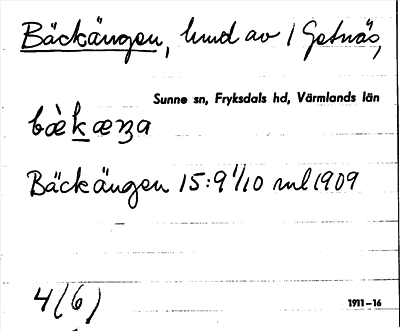 Bäckängen, hmd av 1 Getnäs,
Sunne sn, Fryksdals hd, Värmlands län
bæ̀kæŋa
Bäckängen 15:9 1/10 ml 1909
4(6)
1911–16